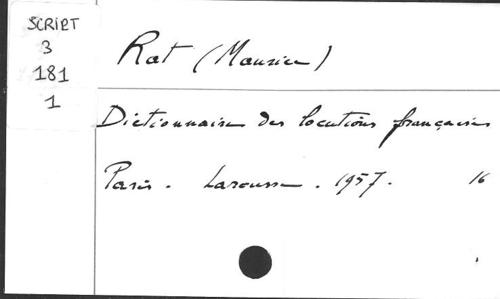 SCRIPT
3
181
1
Rat (Maurice)
Dictionnaire des locutions françaises
Paris. Larousse. 1957. 16